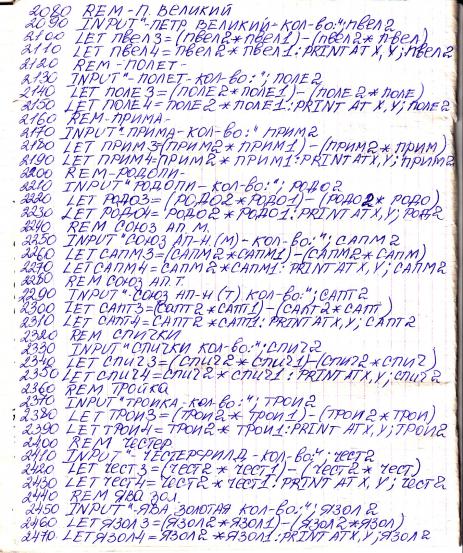 2080 REM-П. ВЕЛИКИЙ
2090 INPUT"-ПЕТР ВЕЛИКИЙ-КОЛ-ВО:";ПВЕЛ2
2100 LET ПВЕЛ3=(ПВЕЛ2*ПВЕЛ1)-(ПВЕЛ2*ПВЕЛ)
2110 LET ПВЕЛ4=ПВЕЛ2*ПВЕЛ1:PRINT AT X,Y;ПВЕЛ2
2120 REM-ПОЛЕТ-
2130 INPUT"-ПОЛЕТ-КОЛ-ВО:";ПОЛЕ2
2140 LET ПОЛЕ3=(ПОЛЕ2*ПОЛЕ1)-(ПОЛЕ2*ПОЛЕ)
2150 LET ПОЛЕ4=ПОЛЕ2*ПОЛЕ1:PRINT AT X,Y;ПОЛЕ2
2160 REM-ПРИМА-
2170 INPUT"ПРИМА-КОЛ-ВО:"ПРИМ2
2180 LET ПРИМ3=(ПРИМ2*ПРИМ1)-(ПРИМ2*ПРИМ)
2190 LET ПРИМ4=ПРИМ2*ПРИМ1:PRINT AT X,Y;ПРИМ2
2200 REM-РОДОПИ-
2210 INPUT"РОДОПИ-КОЛ-ВО:";РОДО2
2220 LET РОДО3=(РОДО2*РОДО1)-(РОДО2*РОДО)
2230 LET РОДО4=РОДО2*РОДО1:PRINT AT X,Y;РОД2
2240 REM СОЮЗ АП.М.
2250 INPUT"СОЮЗ АП-Н(М)-КОЛ-ВО:";САПМ2
2260 LET САПМ3=(САПМ2*САПМ1)-(САПМ2*САПМ)
2270 LET САПМ4=САПМ2*САПМ1:PRINT AT X,Y;САПМ2
2280 REM СОЮЗ АП.Т.
2290 INPUT"-СОЮЗ АП-Н(Т) КОЛ-ВО:";САПТ2
2300 LET САПТ3=(САПТ2*САПТ1)-(САПТ2*САПТ
2310 LET САПТ4=САПТ2*САПТ1:PRINT AT X,Y;САПТ2
2320 REM СПИЧКИ
2330 INPUT"СПИЧКИ КОЛ-ВО:";СПИЧ2
2340 LET СПИЧ3=(СПИЧ2*СПИЧ1)-(СПИЧ2*СПИЧ)
2350 LET СПИЧ4=СПИЧ2*СПИЧ1:PRINT AT X,Y;СПИЧ2
2360 REM ТРОЙКА
2370 INPUT"ТРОЙКА-КОЛ-ВО:";ТРОИ2
2380 LET ТРОИ3=(ТРОИ2*ТРОИ1)-(ТРОИ2*ТРОИ)
2390 LET ТРОИ4=ТРОИ2*ТРОИ1:PRINT AT X,Y;ТРОИ2
2400 REM ЧЕСТЕР
2410 INPUT"-ЧЕСТЕРФИЛД-КОЛ-ВО:";ЧЕСТ2
2420 LET ЧЕСТ3=(ЧЕСТ2*ЧЕСТ1)-(ЧЕСТ2*ЧЕСТ)
2430 LET ЧЕСТ4=ЧЕСТ2*ЧЕСТ1:PRINT AT X,Y;ЧЕСТ2
2440 REM ЯВА ЗОЛ.
2450 INPUT"-ЯВА ЗОЛОТАЯ КОЛ-ВО:";ЯЗОЛ2
2460 LET ЯЗОЛ3=(ЯЗОЛ2*ЯЗОЛ1)-(ЯЗОЛ2*ЯЗОЛ)
2470 LET ЯЗОЛ4=ЯЗОЛ2*ЯЗОЛ1:PRINT AT X,Y;ЯЗОЛ2